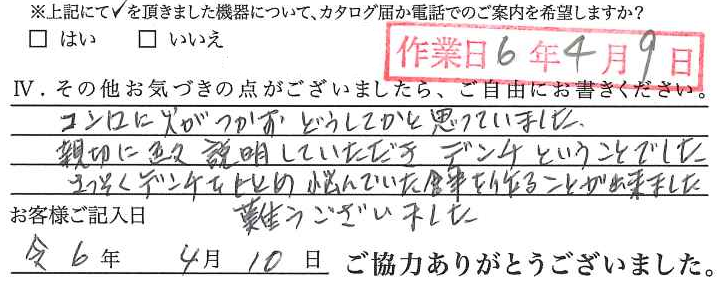 ※上記にて✓を頂きました機器について、カタログ届か電話でのご案内を希望しますか?
□ はい □ いいえ
作業日6年4月9日
Ⅳ．その他お気づきの点がございましたら、ご自由にお書きください。
コンロに火がつかず どうしてかと思っていました、
親切に色々 説明していただき デンチということでした
さっそくデンチを 悩んでいた食事を作ることが出来ました
お客様ご記入日 難うございました
令6年 4月10日 ご協力ありがとうございました。